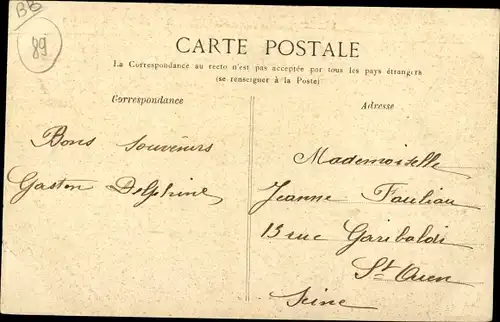 BB
89
CARTE POSTALE
La Correspondance au recto n'est pas acceptée par tous les pays étrangers
(se renseigner à la Poste)
Correspondance
Adresse
Bons souvenirs
Gaston Delphine
Mademoiselle
Jeanne Fauliau
13 rue Garibaldi
St Ouen
Seine